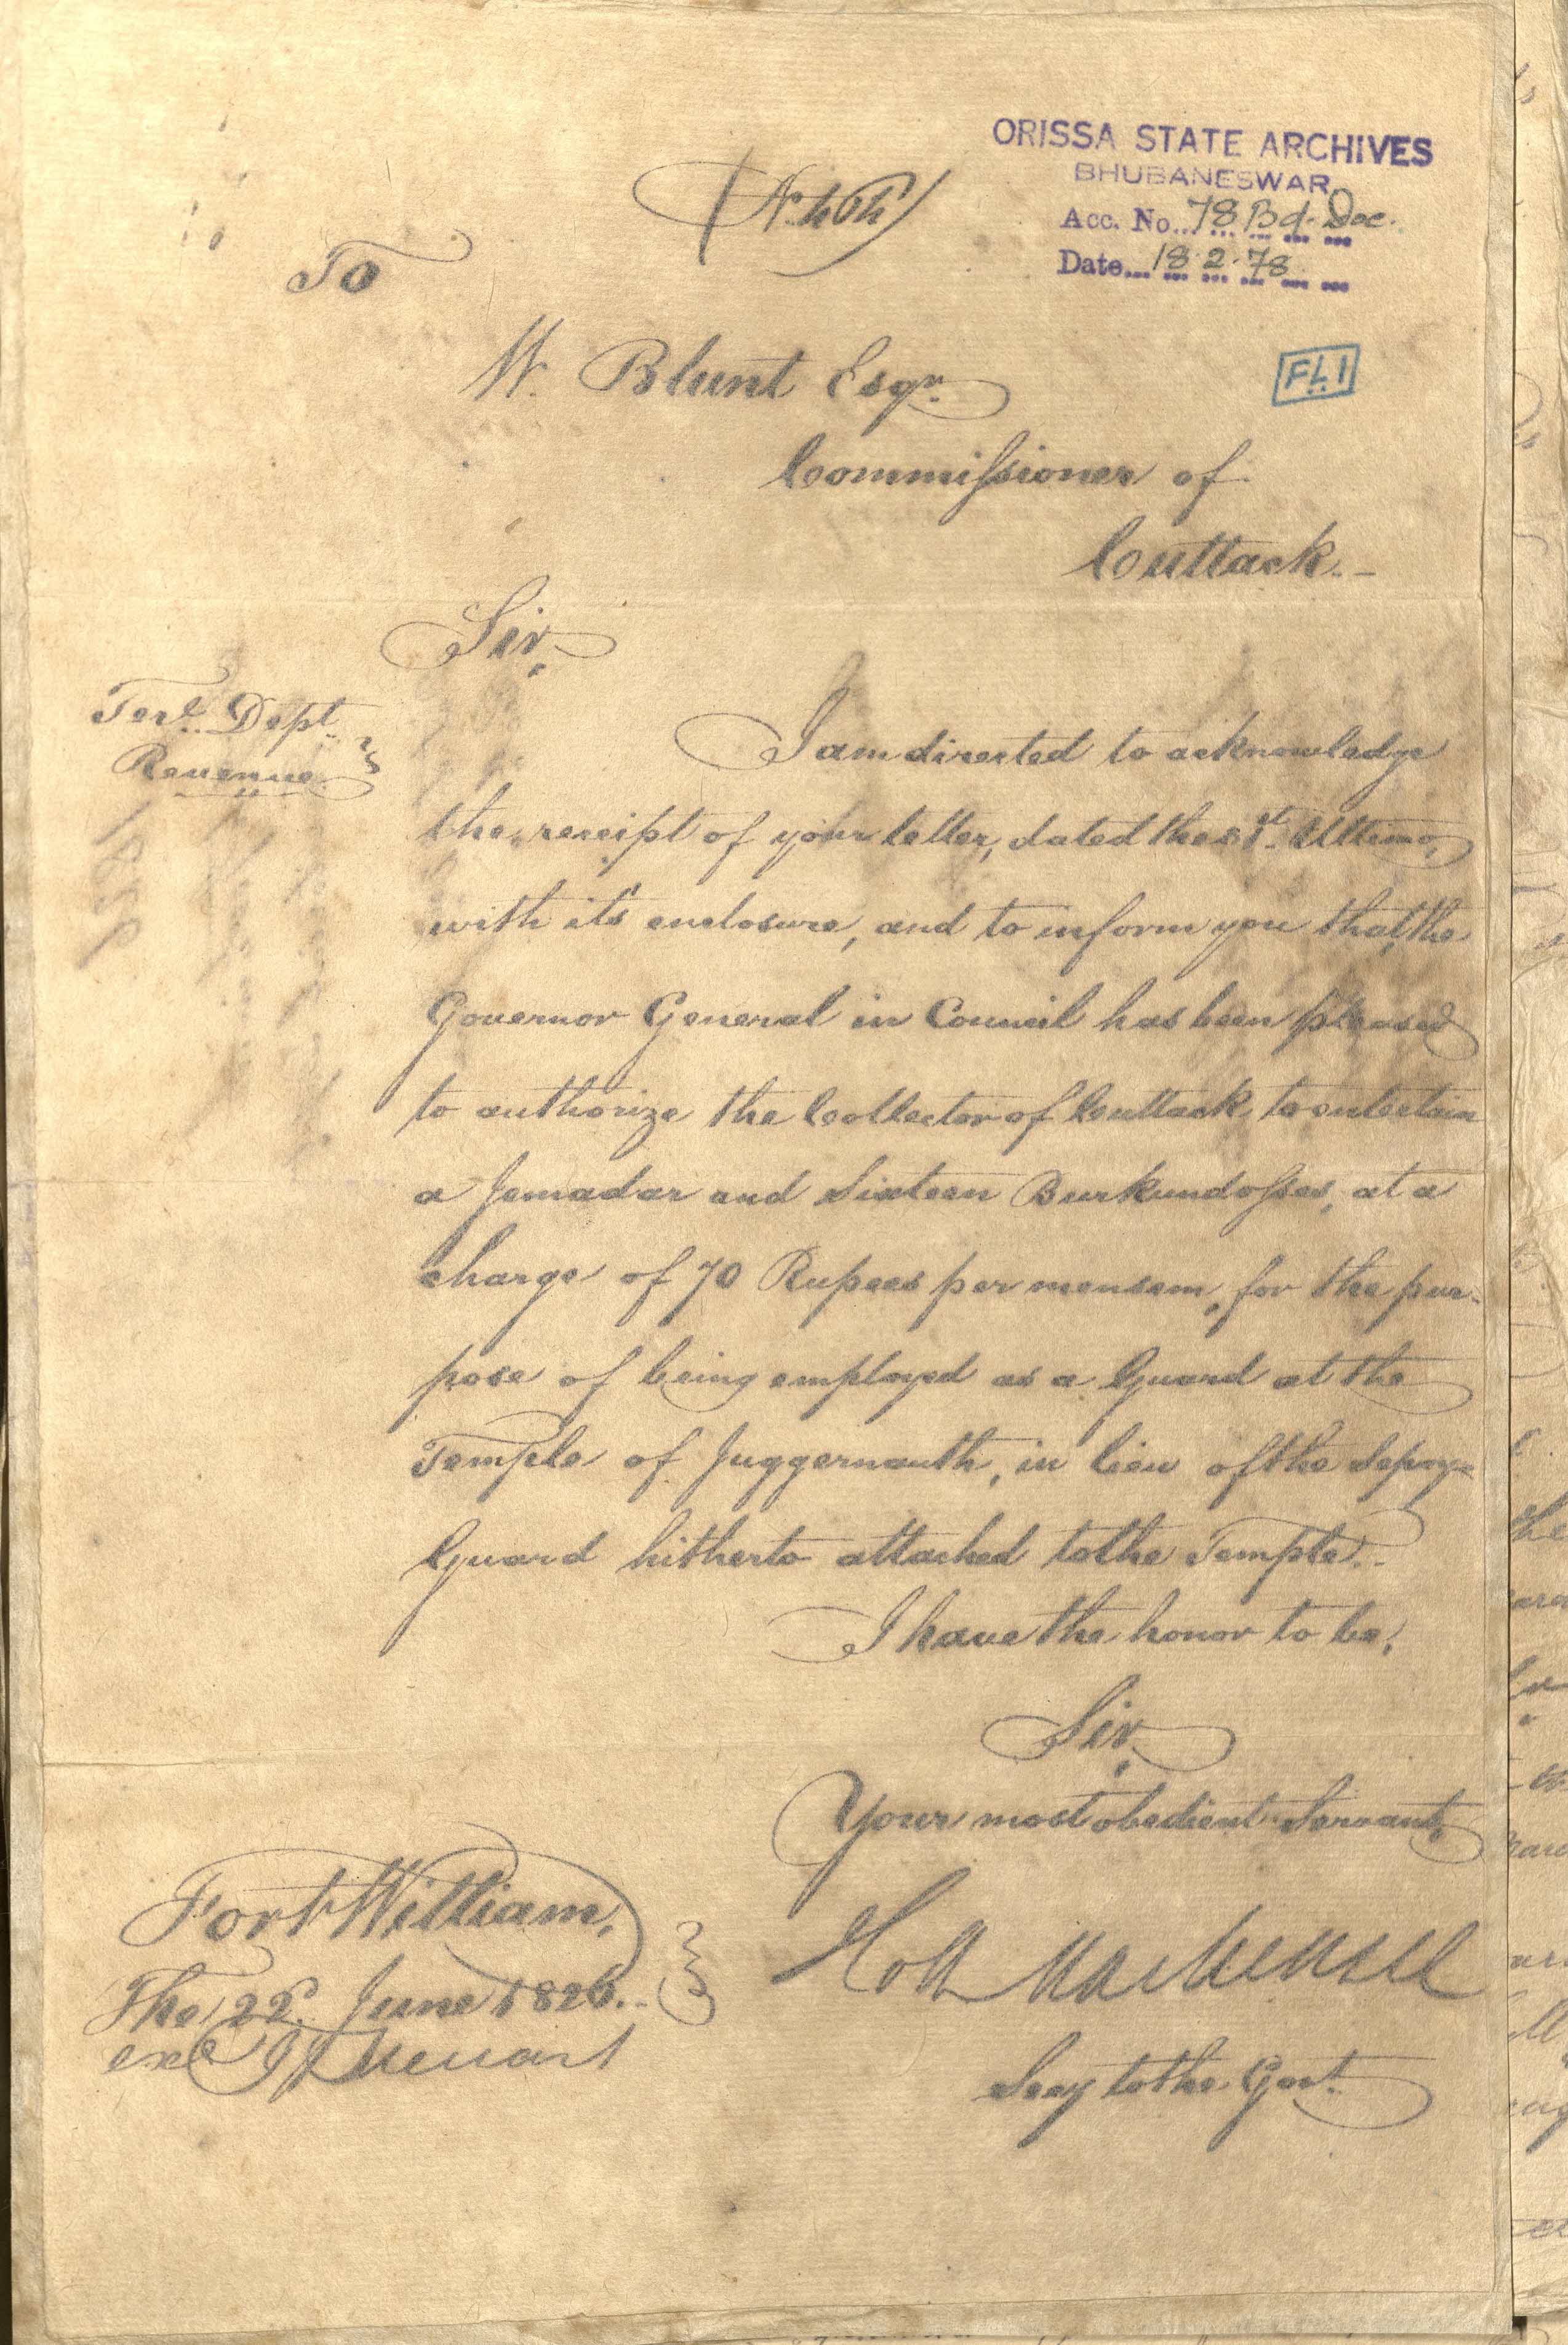 ORISSA STATE ARCHIVES
BHUBANESWAR
Acc. No. 78 Bd. Doc.
Date 18.2.78
To
W. Blunt Esqr.
FL1
Commissioner of
Cuttack.
Sir,
Terl. Dept.
Revenue
I am directed to acknowledge
the receipt of your letter, dated the 31st. Ultimo,
with it's enclosure, and to inform you that, the
Governor General in Council has been pleased
to authorize the Collector of Cuttack to entertain
a Jemadar and Sixteen Burkundosses, at a
charge of 70 Rupees per mensem, for the pur-
pose of being employed as a Guard at the
Temple of Juggernauth, in lieu of the Sepoy
Guard hitherto attached to the Temple.
I have the honor to be,
Sir,
Your most obedient Servant,
Fort William,
The 22d. June 1826.
Holt Mackenzie
exd
Secy to the Govt.